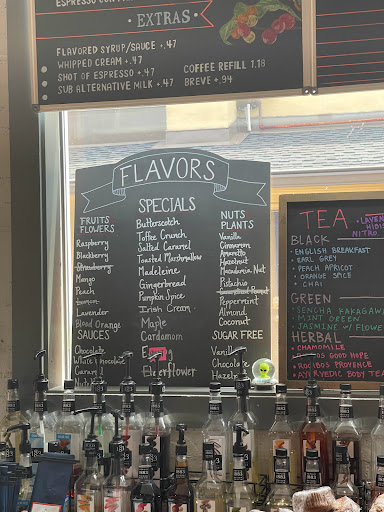 ESPRESSO CON
· EXTRAS ·
FLAVORED SYRUP/SAUCE +.47
WHIPPED CREAM +.47
SHOT OF ESPRESSO +.47
SUB ALTERNATIVE MILK +.47
COFFEE REFILL 1.18
BREVE +.94
FLAVORS
FRUITS
FLOWERS
Raspberry
Blackberry
Strawberry
Mango
Peach
Lemon
Lavender
Blood Orange
SAUCES
Chocolate
White Chocolate
SPECIALS
Butterscotch
Toffee Crunch
Salted Caramel
Toasted Marshmallow
Madeleine
Gingerbread
Pumpkin Spice
Irish Cream
Maple
Cardamom
Elderflower
NUTS
PLANTS
Vanilla
Cinnamon
Amaretto
Hazelnut
Macadamia Nut
Pistachio
Peppermint
Almond
Coconut
SUGAR FREE
Vanilla
Chocolate
Hazeln
TEA
NITRO
BLACK
• ENGLISH BREAKFAST
• EARL GREY
• PEACH APRICOT
• ORANGE SPICE
• CHAI
GREEN
• SENCHA KAKAGAWA
• MINT GREEN
• JASMINE W/ FLOWE
HERBAL
• CHAMOMILE
GOOD HOPE
• ROOIBOS PROVENCE
• AYURVEDIC BODY TEA